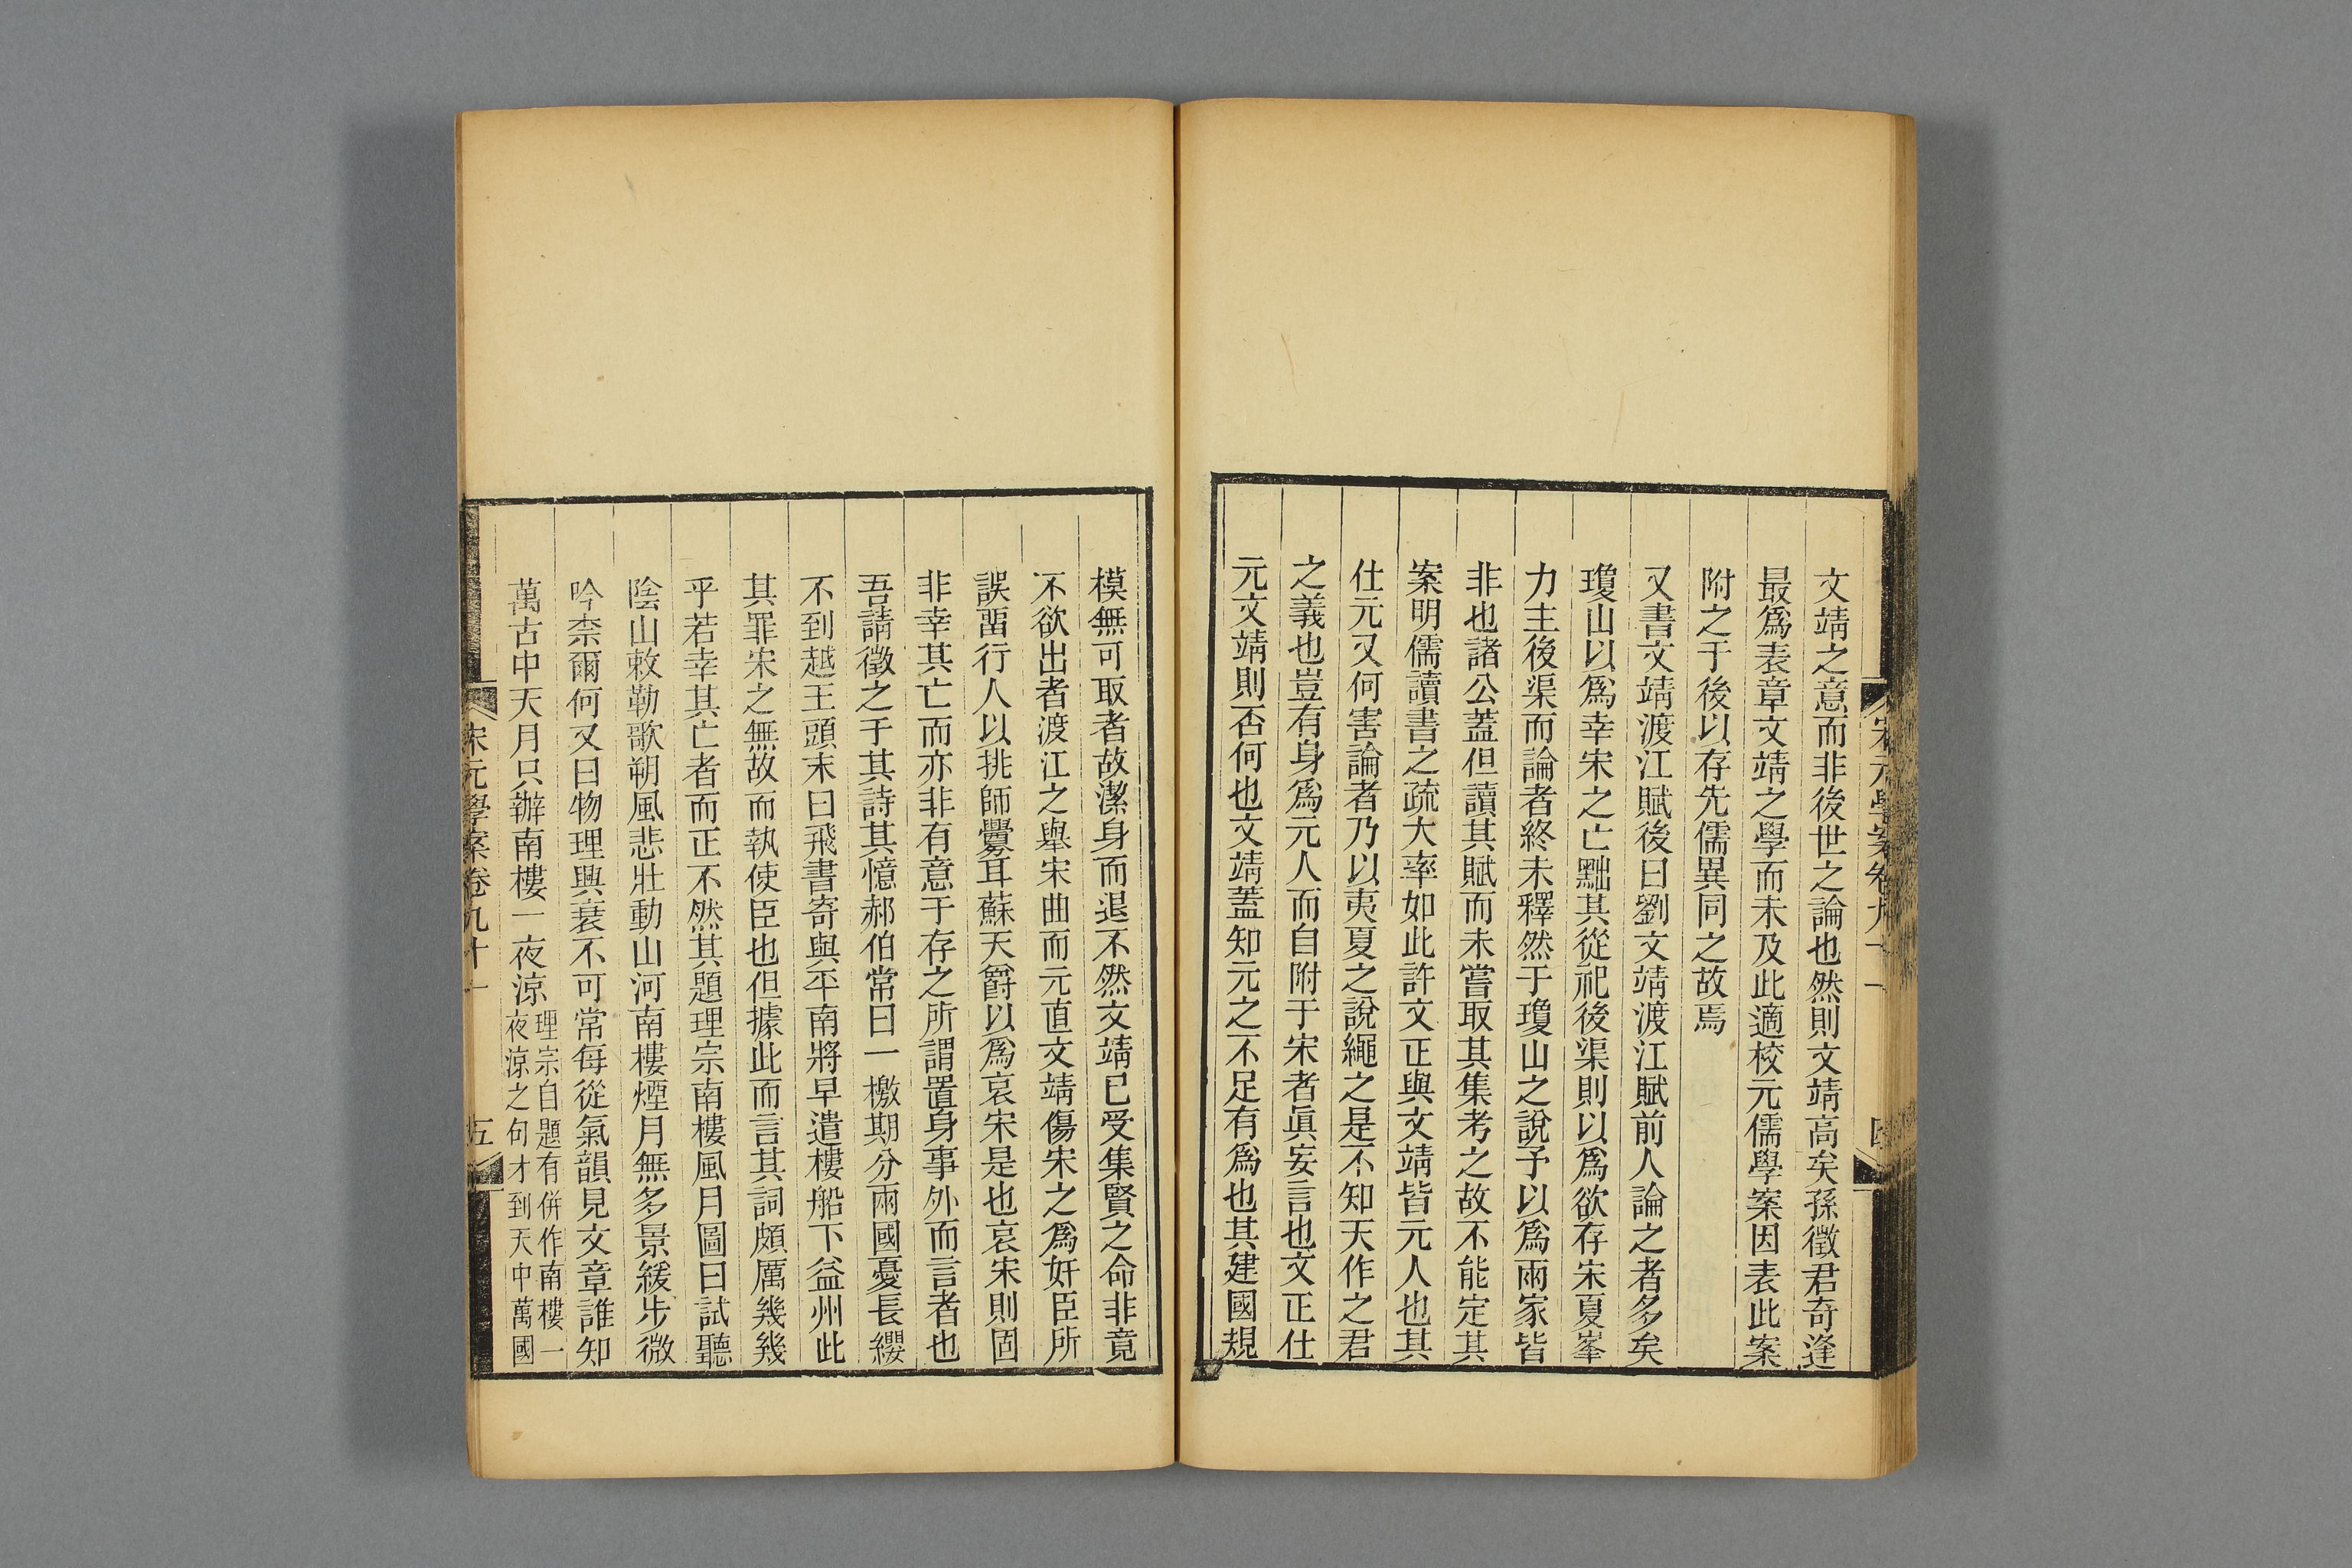 文靖之意而非後世之論也然則文靖高矣孫徵君奇逢
最爲表章文靖之學而未及此適校元儒學案因表此案
附之于後以存先儒異同之故焉
又書文靖渡江賦後曰劉文靖渡江賦前人論之者多矣
瓊山以爲幸宋之亡黜其從祀後渠則以爲欲存宋夏峯
力主後渠而論者終未釋然于瓊山之說予以爲兩家皆
非也諸公蓋但讀其賦而未嘗取其集考之故不能定其
案明儒讀書之疏大率如此許文正與文靖皆元人也其
仕元又何害論者乃以夷夏之說繩之是不知天作之君
之義也豈有身爲元人而自附于宋者眞妄言也文正仕
元文靖則否何也文靖蓋知元之不足有爲也其建國規
模無可取者故潔身而退不然文靖已受集賢之命非竟
不欲出者渡江之舉宋曲而元直文靖傷宋之爲奸臣所
誤畱行人以挑師釁耳蘇天爵以爲哀宋是也哀宋則固
非幸其亡而亦非有意于存之所謂置身事外而言者也
吾請徵之于其詩其憶郝伯常曰一檄期分兩國憂長纓
不到越王頭末曰飛書寄與平南將早遣樓船下益州此
其罪宋之無故而執使臣也但據此而言其詞頗厲幾幾
乎若幸其亡者而正不然其題理宗南樓風月圖曰試聽
陰山敕勒歌朔風悲壯動山河南樓煙月無多景緩步微
吟柰爾何又曰物理興衰不可常每從氣韻見文章誰知
萬古中天月只辦南樓一夜涼理宗自題有併作南樓一
夜涼之句才到天中萬國
宋元學案卷九十一
五